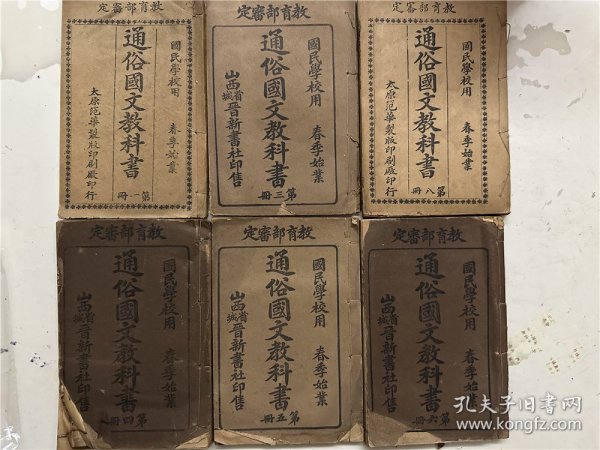 定審部育教
國民學校用 春季始業
通俗國文教科書
第一冊
太原范華製版印刷廠印行
定審部育教
國民學校用 春季始業
通俗國文教科書
第三冊
山西省城晉新書社印售
定審部育教
國民學校用 春季始業
通俗國文教科書
第八冊
太原范華製版印刷廠印行
定審部育教
國民學校用 春季始業
通俗國文教科書
第四冊
山西省城晉新書社印售
定審部育教
國民學校用 春季始業
通俗國文教科書
第五冊
山西省城晉新書社印售
定審部育教
國民學校用 春季始業
通俗國文教科書
第六冊
山西省城晉新書社印售
孔夫子旧书网
www.kongfz.com